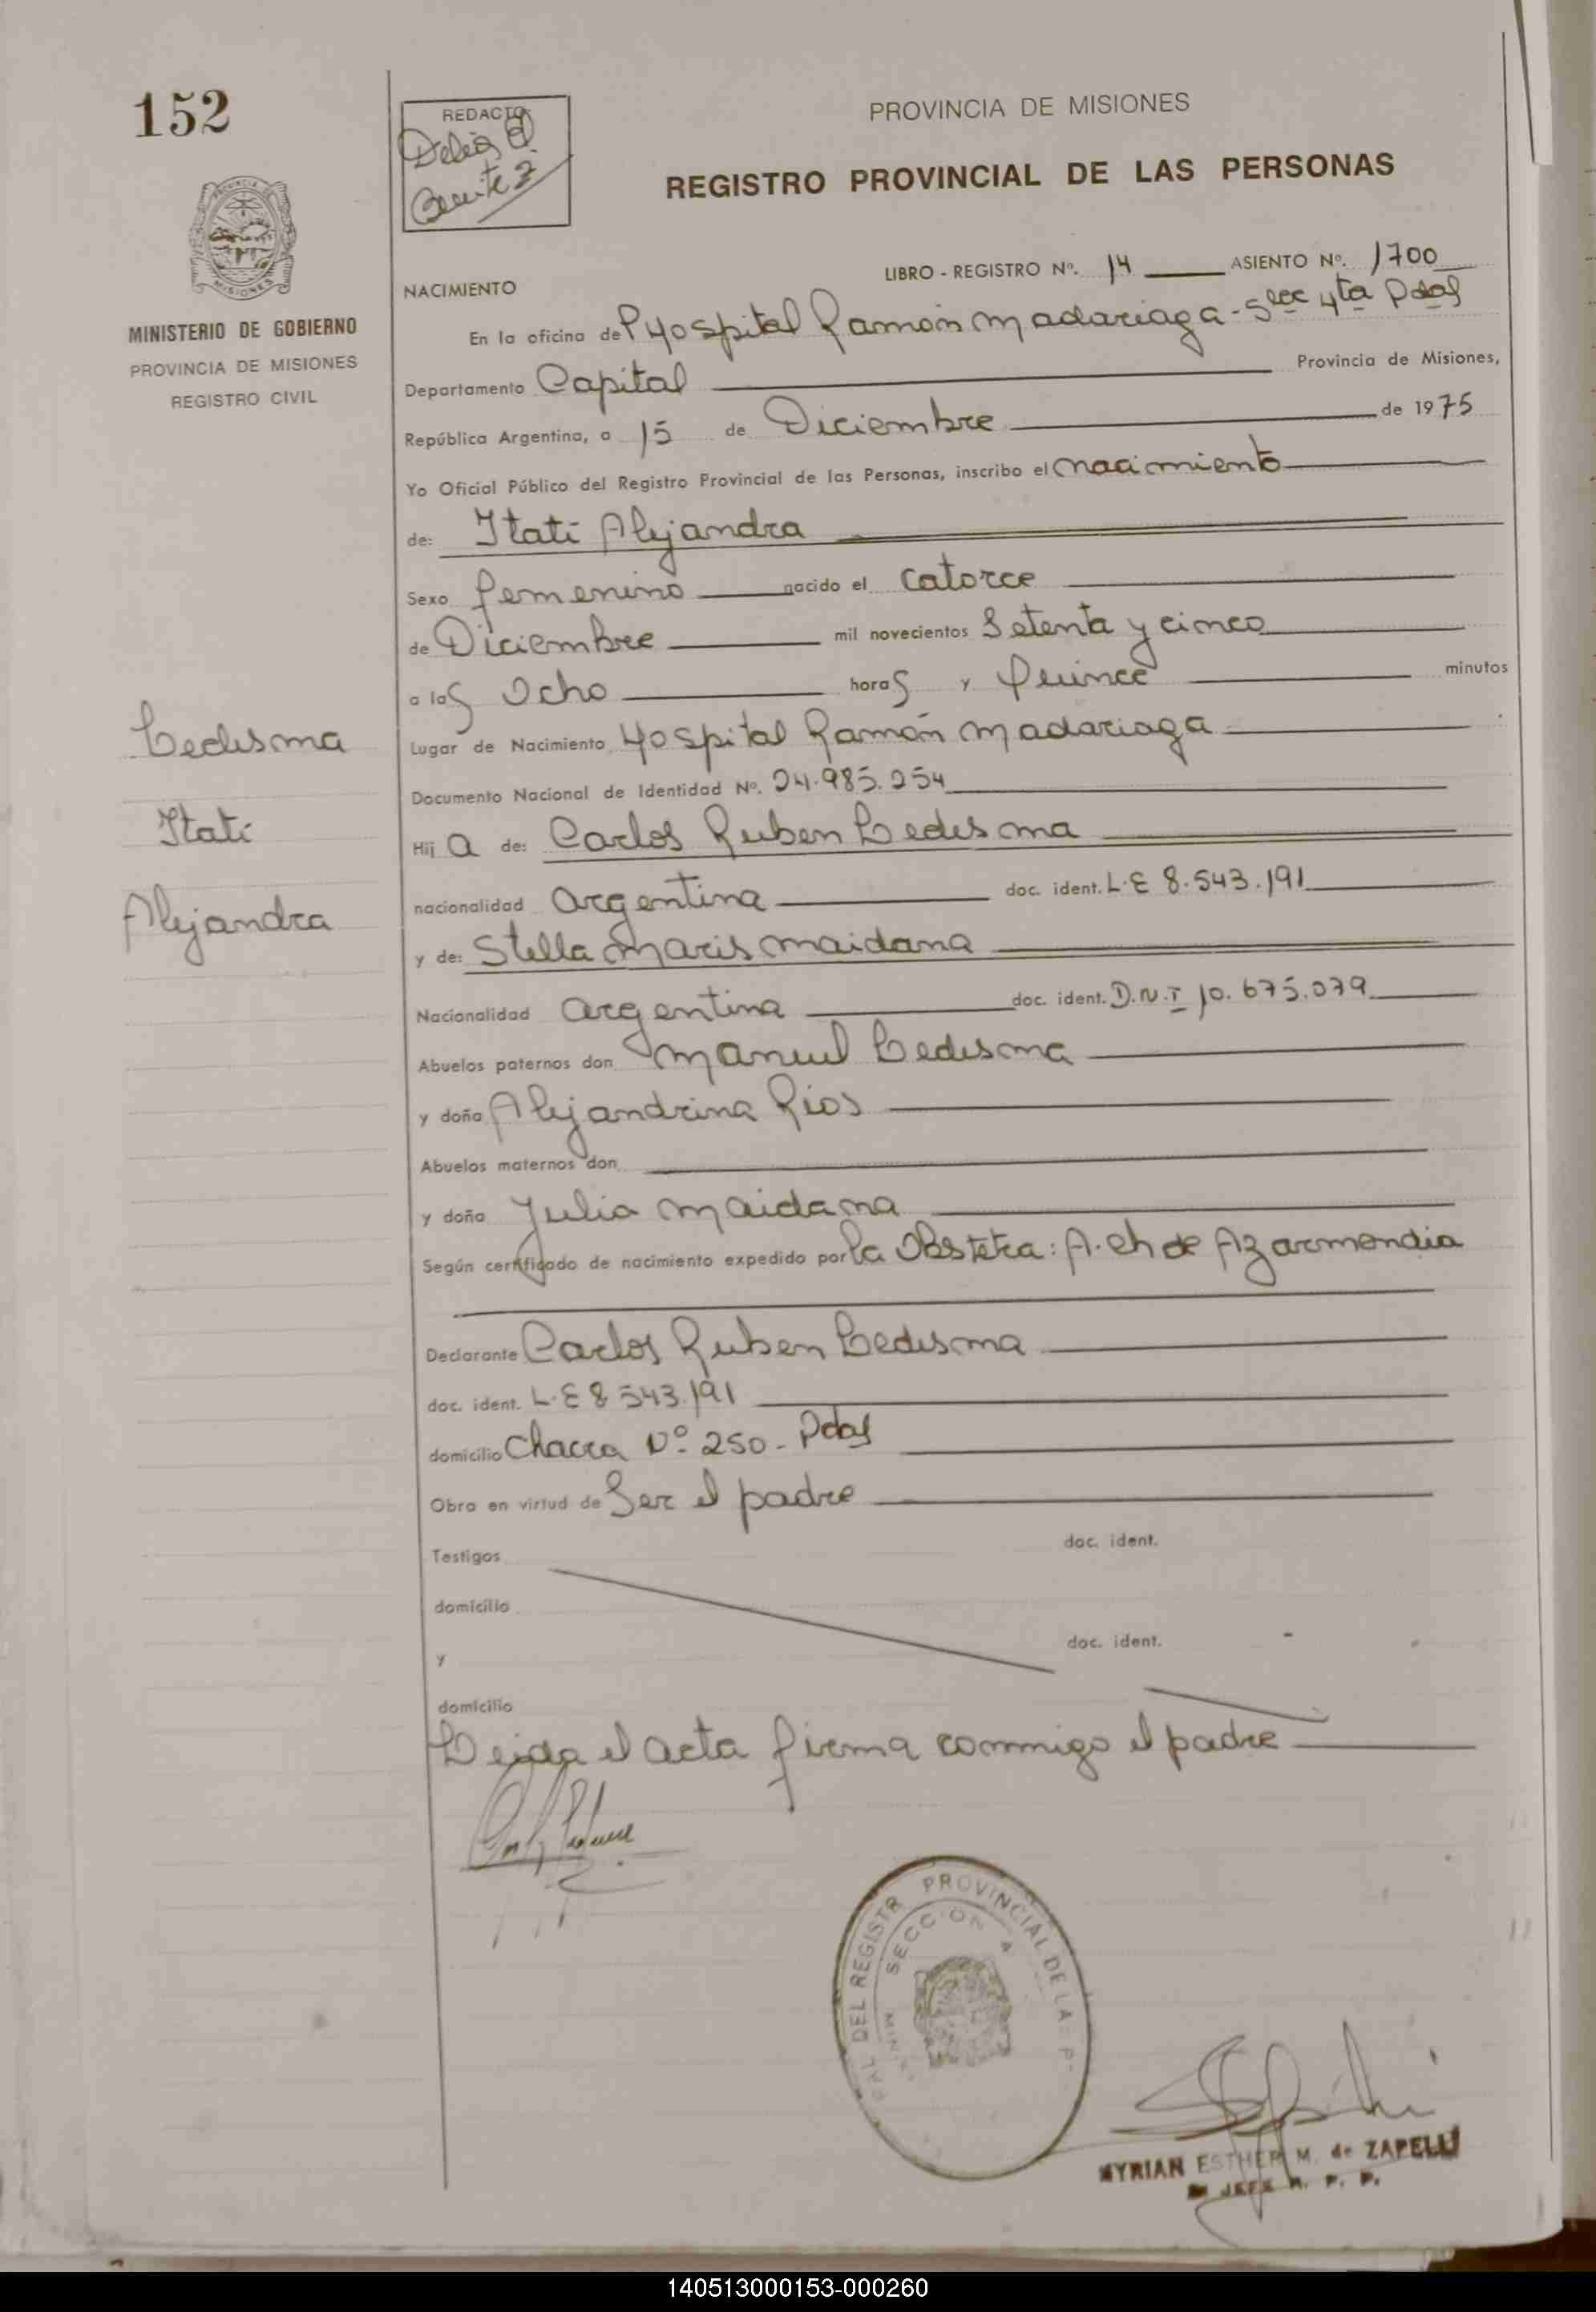 152
REDACTO
Delia
Benitez
PROVINCIA DE MISIONES
REGISTRO PROVINCIAL DE LAS PERSONAS
MINISTERIO DE GOBIERNO
PROVINCIA DE MISIONES
REGISTRO CIVIL
LIBRO - REGISTRO Nº. 14 ASIENTO Nº. 1700
NACIMIENTO
En la oficina de Hospital Ramón Madariaga - Secc 4ta Pdas
Departamento Capital Provincia de Misiones,
República Argentina, a 15 de Diciembre de 1975
Yo Oficial Público del Registro Provincial de las Personas, inscribo el nacimiento
de: Itatí Alejandra
Sexo femenino nacido el catorce
de Diciembre mil novecientos Setenta y cinco
a las Ocho horas y Quince minutos
Lugar de Nacimiento Hospital Ramón Madariaga
Documento Nacional de Identidad Nº. 24.985.254
Hij a de: Carlos Ruben Ledesma
nacionalidad argentina doc. ident. L.E 8.543.191
y de: Stella Maris Maidana
Nacionalidad argentina doc. ident. D.N.I 10.675.079
Abuelos paternos don Manuel Ledesma
y doña Alejandrina Rios
Abuelos maternos don
y doña Julia Maidana
Según certificado de nacimiento expedido por la Obstetra: A. Ch de Azarmendia
Declarante Carlos Ruben Ledesma
doc. ident. L.E 8 543.191
domicilio Chacra Nº 250 - Pdas
Obra en virtud de Ser el padre
Testigos doc. ident.
domicilio
y doc. ident.
domicilio
Leida el acta firma conmigo el padre
Ledesma
Itatí
Alejandra
DEL REGISTR PROVINCIAL DE LA P
SECCION 4
MYRIAN ESTHER M. de ZAPELLI
JEFE R. P. P.
140513000153-000260